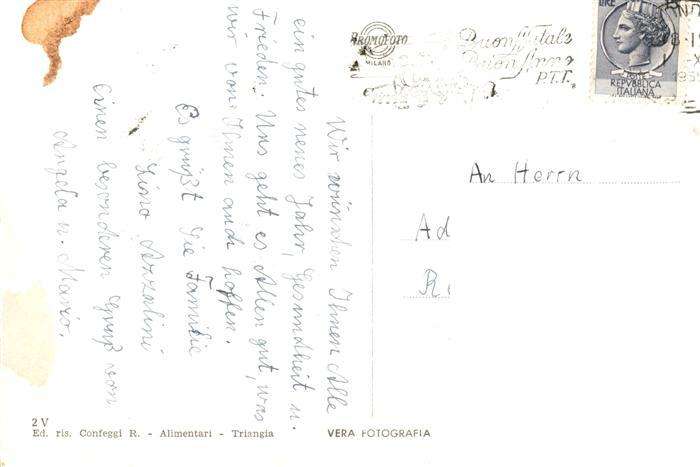 Wir wünschen Ihnen Alle
ein gutes neues Jahr, Gesundheit u.
Frieden. Uns geht es Allen gut, was
wir von Ihnen auch hoffen.
Es grüßt Sie Familie
Lino Azzalini
einen besonderen Gruß von
Angela u. Mario.
PROMOFOTO
MILANO
Buon Natale
Buon Anno
P.T.T.
LIRE
REPVBBLICA
ITALIANA
An Herrn
Ad
R
2 V
Ed. ris. Confeggi R. - Alimentari - Triangia
VERA FOTOGRAFIA